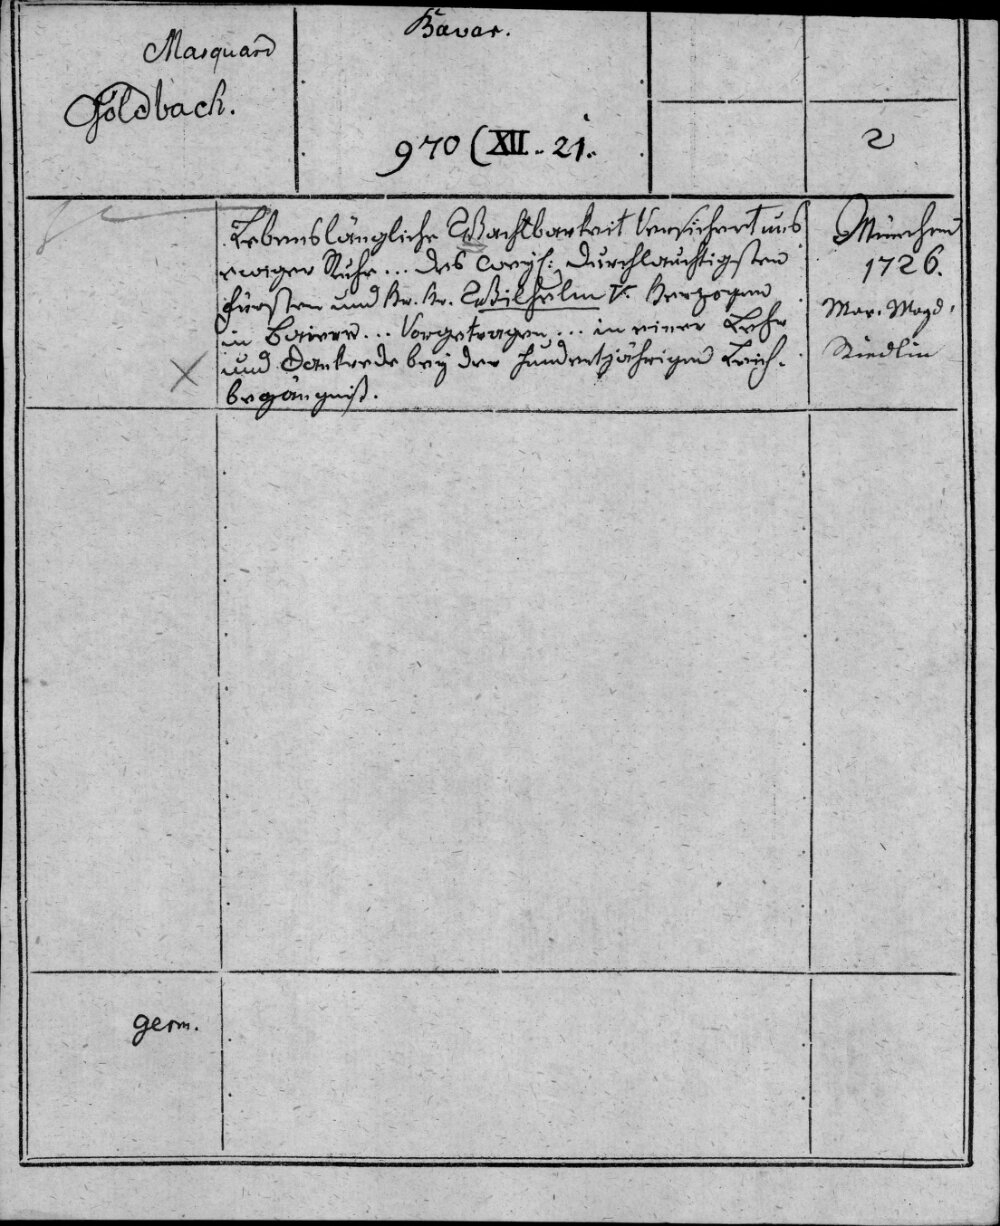 Bavar.
Marquard
Goldbach.
970 (XII. 21.
2
Lebenslängliche Wachtbarkeit Versichert uns
ewiger Ruhe ... des Weyl: Durchlauchtigsten
Fürsten und Hr. Hr. Wilhelm V. Herzogen
in Baiern .. Vorgetragen ... in einer Lehr
und Dankrede bey der hundertjährigen Leich-
begängniß.
München
1726.
Mar. Magd.
Riedlin
germ.